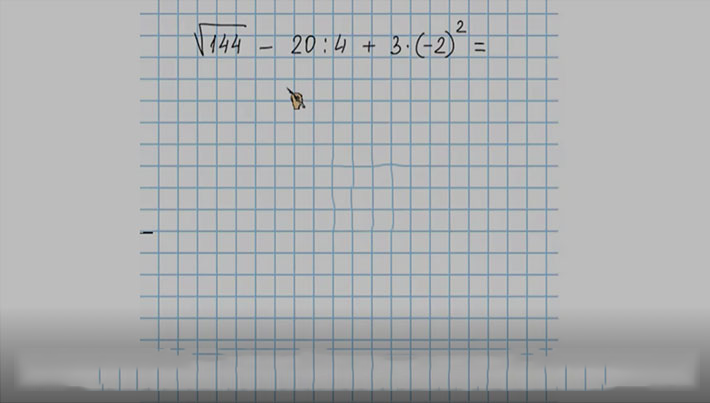 √144 - 20 : 4 + 3 · (-2)² =